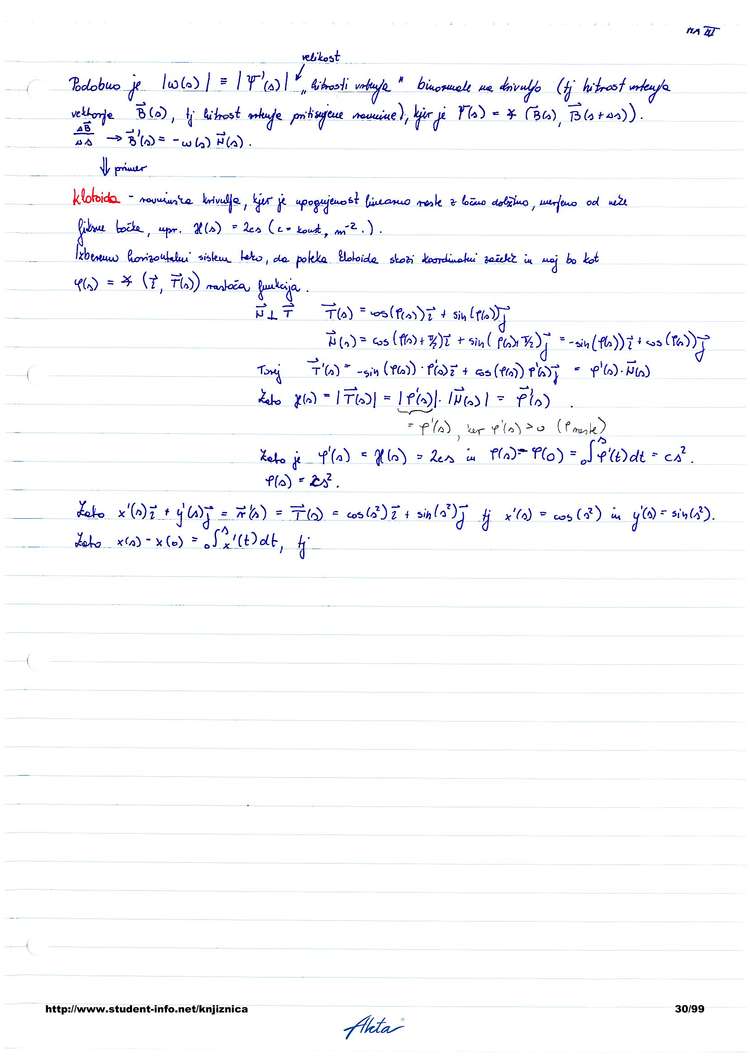 MA III
velikost
Podobno je |ω(s)| ≡ |Ψ'(s)| „hitrosti vrtenja" binormale na krivuljo (tj hitrost vrtenja
vektorja B⃗(s), tj hitrost vrtenja pritisnjene ravnine), kjer je Ψ(s) = ∢ (B⃗(s), B⃗(s+Δs)).
ΔB⃗/Δs → B⃗'(s) = -ω(s) N⃗(s).
⇓ primer
Klotoida - ravninska krivulja, kjer je upognjenost linearno raste z ločno dolžino, merjeno od neke
fiksne točke, npr. ℋ(s) = 2cs (c = konst, m⁻².).
Izberemo horizontalni sistem tako, da poteka klotoida skozi koordinatni začetek in naj bo kot
φ(s) = ∢ (i⃗, T⃗(s)) rastoča funkcija.
N⃗ ⊥ T⃗ T⃗(s) = cos(φ(s)) i⃗ + sin(φ(s)) j⃗
N⃗(s) = cos(φ(s)+π/2) i⃗ + sin(φ(s)+π/2) j⃗ = -sin(φ(s)) i⃗ + cos(φ(s)) j⃗
Torej T⃗'(s) = -sin(φ(s))·φ'(s) i⃗ + cos(φ(s)) φ'(s) j⃗ = φ'(s)·N⃗(s)
Zato ℋ(s) = |T⃗'(s)| = |φ'(s)|·|N⃗(s)| = φ'(s).
= φ'(s), ker φ'(s) > 0 (φ raste)
Zato je φ'(s) = ℋ(s) = 2cs in φ(s) - φ(0) = ₀∫ˢ φ'(t)dt = cs².
φ(s) = cs².
Zato x'(s) i⃗ + y'(s) j⃗ = r⃗'(s) = T⃗(s) = cos(s²) i⃗ + sin(s²) j⃗ tj x'(s) = cos(s²) in y'(s) = sin(s²).
Zato x(s) - x(0) = ₀∫ˢ x'(t)dt, tj
http://www.student-info.net/knjiznica
30/99
Ahta